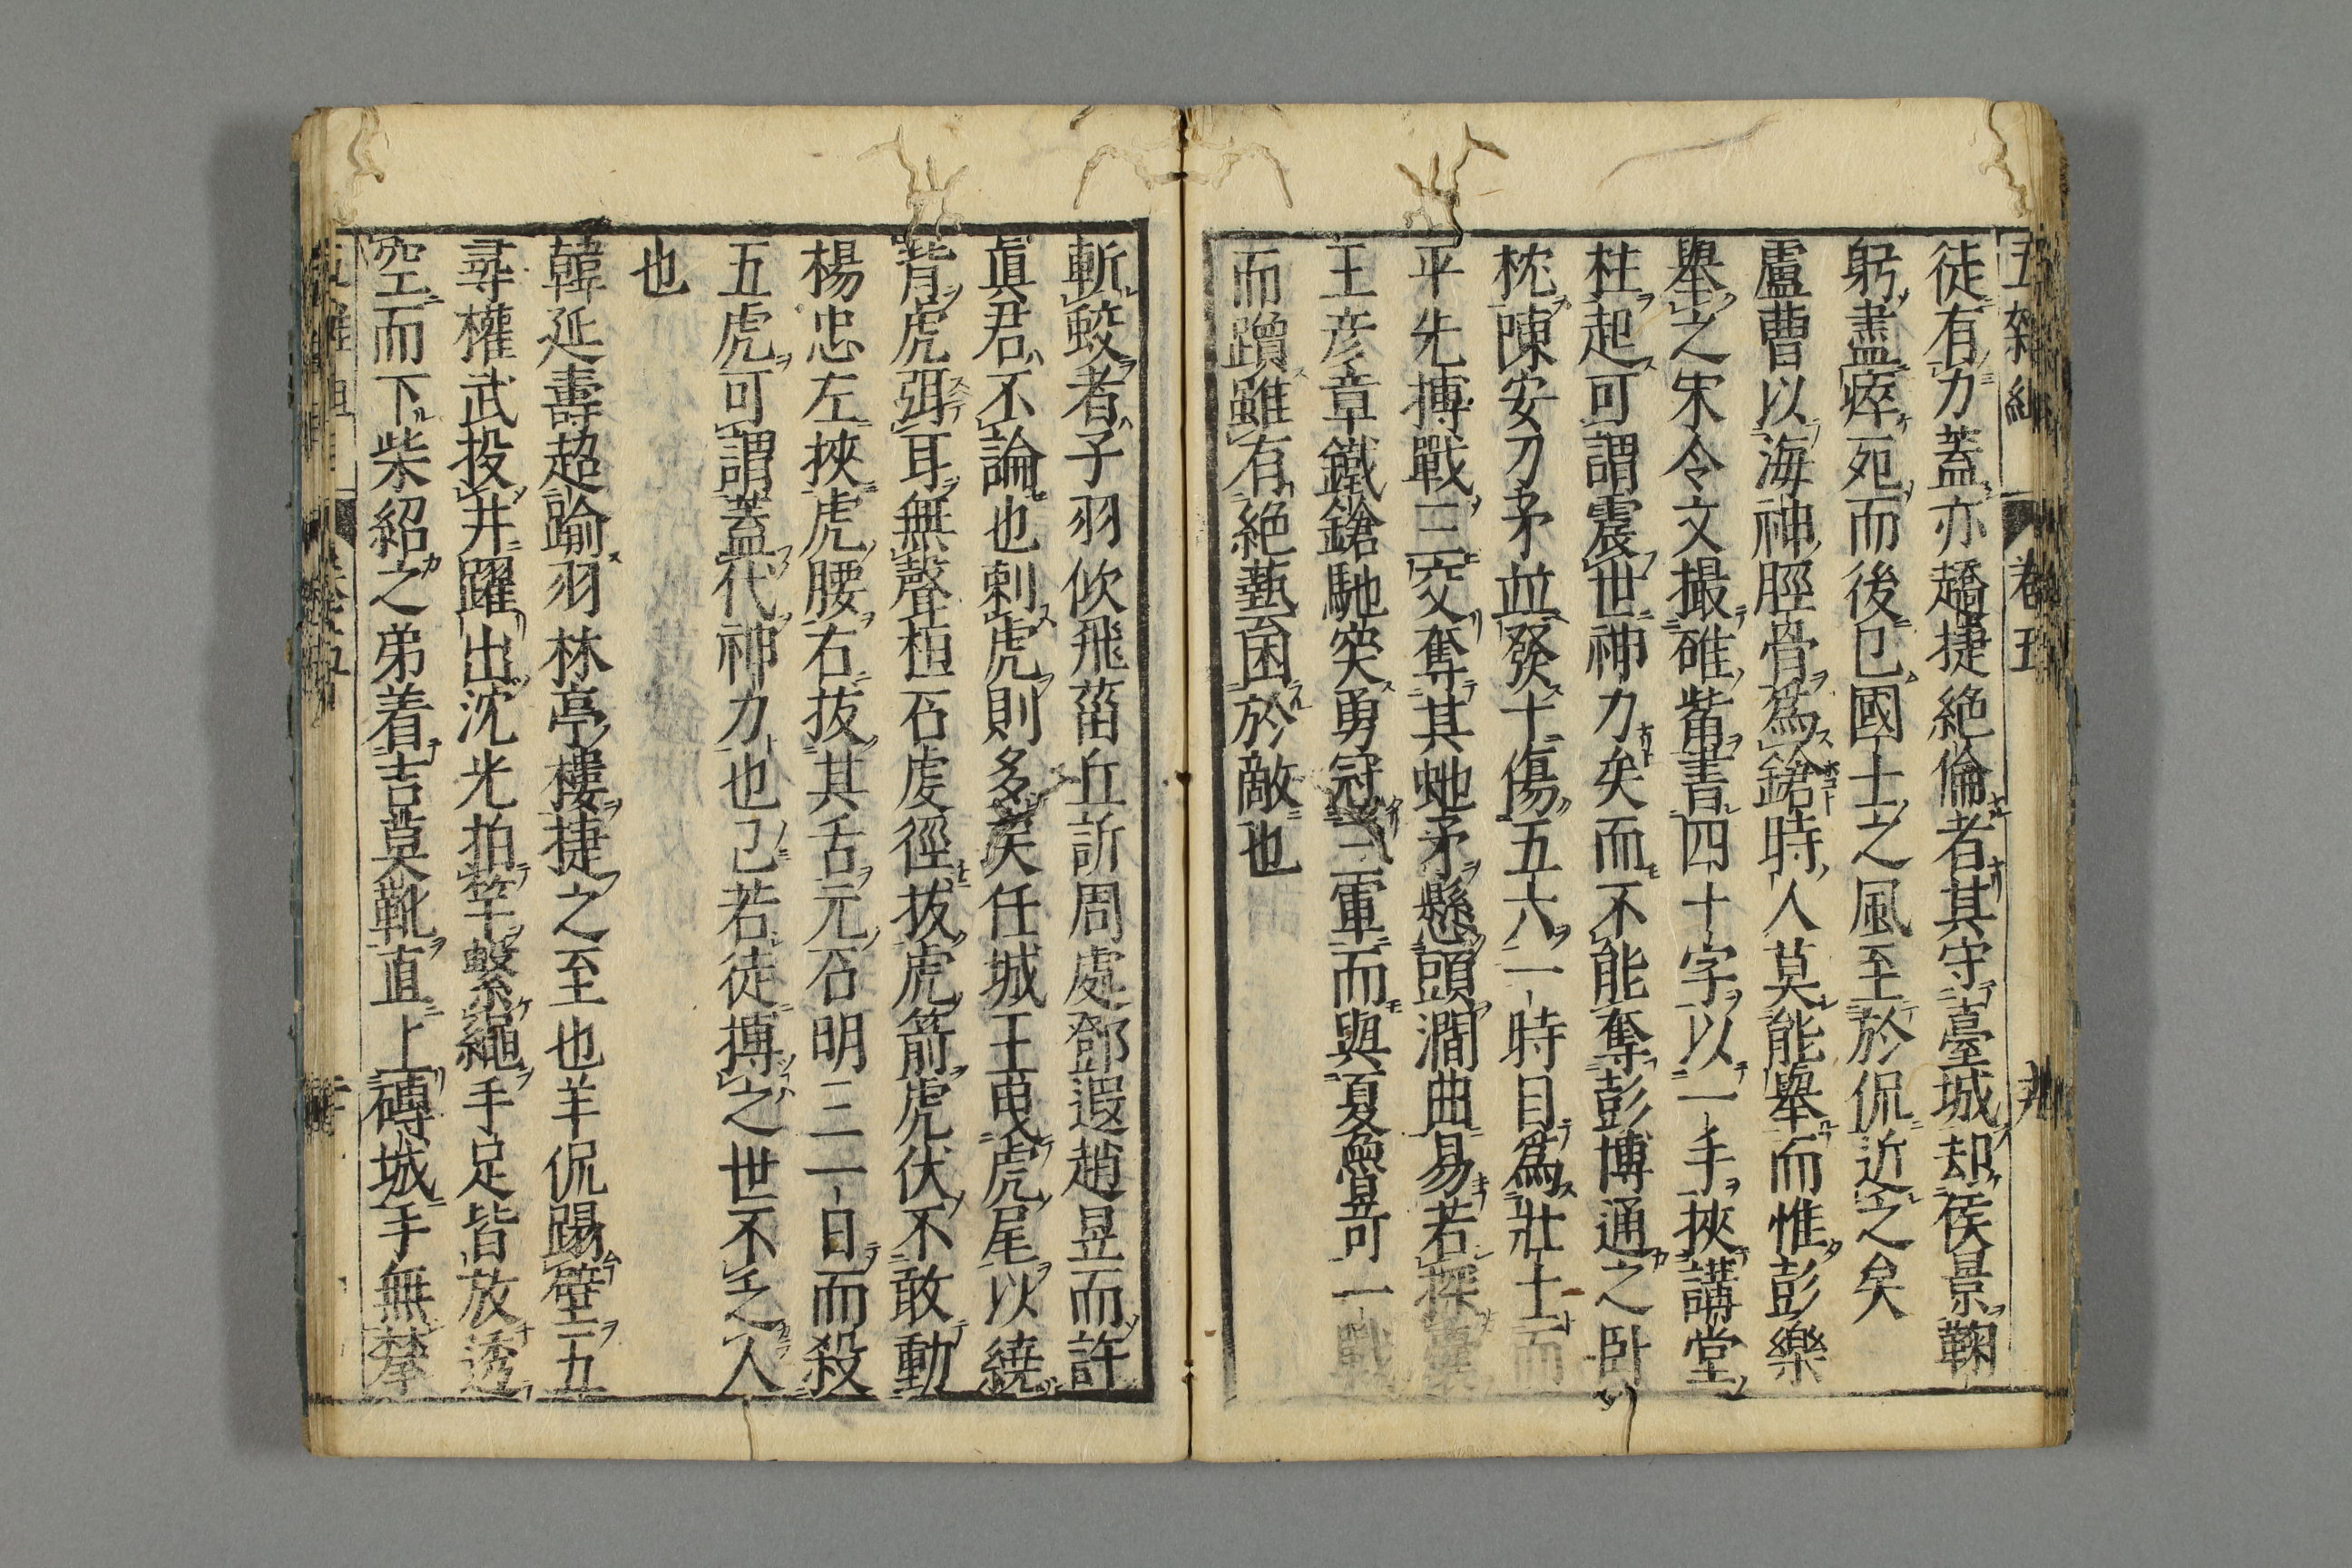 五雜組 卷五
徒有力蓋亦趫捷絶倫者其守臺城却侯景鞠
躬盡瘁死而後已國士之風至於侃近之矣
盧曹以海神脛骨爲鎗時人莫能舉而惟彭樂
舉之宋令文撮碓觜書四十字以一手挾講堂
柱起可謂震世神力矣而不能奪彭博通之卧
枕陳安刀矛並發十傷五六一時目爲壯士而
平先搏戰三交奪其蛇矛懸頭澗曲易若探囊
王彦章鐵鎗馳突勇冠三軍而與夏魯奇一戰
而躓雖有絶藝困於敵也
斬蛟者子羽佽飛菑丘訢周處鄧遐趙昱而許
眞君不論也刺虎則多矣任城王曳虎尾以繞
背虎弭耳無聲桓石虔徑拔虎箭虎伏不敢動
楊忠左挾虎腰右拔其舌元石明三一日而殺
五虎可謂蓋代神力也已若徒搏之世不乏人
也
韓延壽超踰羽林亭樓捷之至也羊侃踢壁五
尋權武投井躍出沈光拍竿繫繩手足皆放透
空而下柴紹之弟着吉莫靴直上磚城手無攀